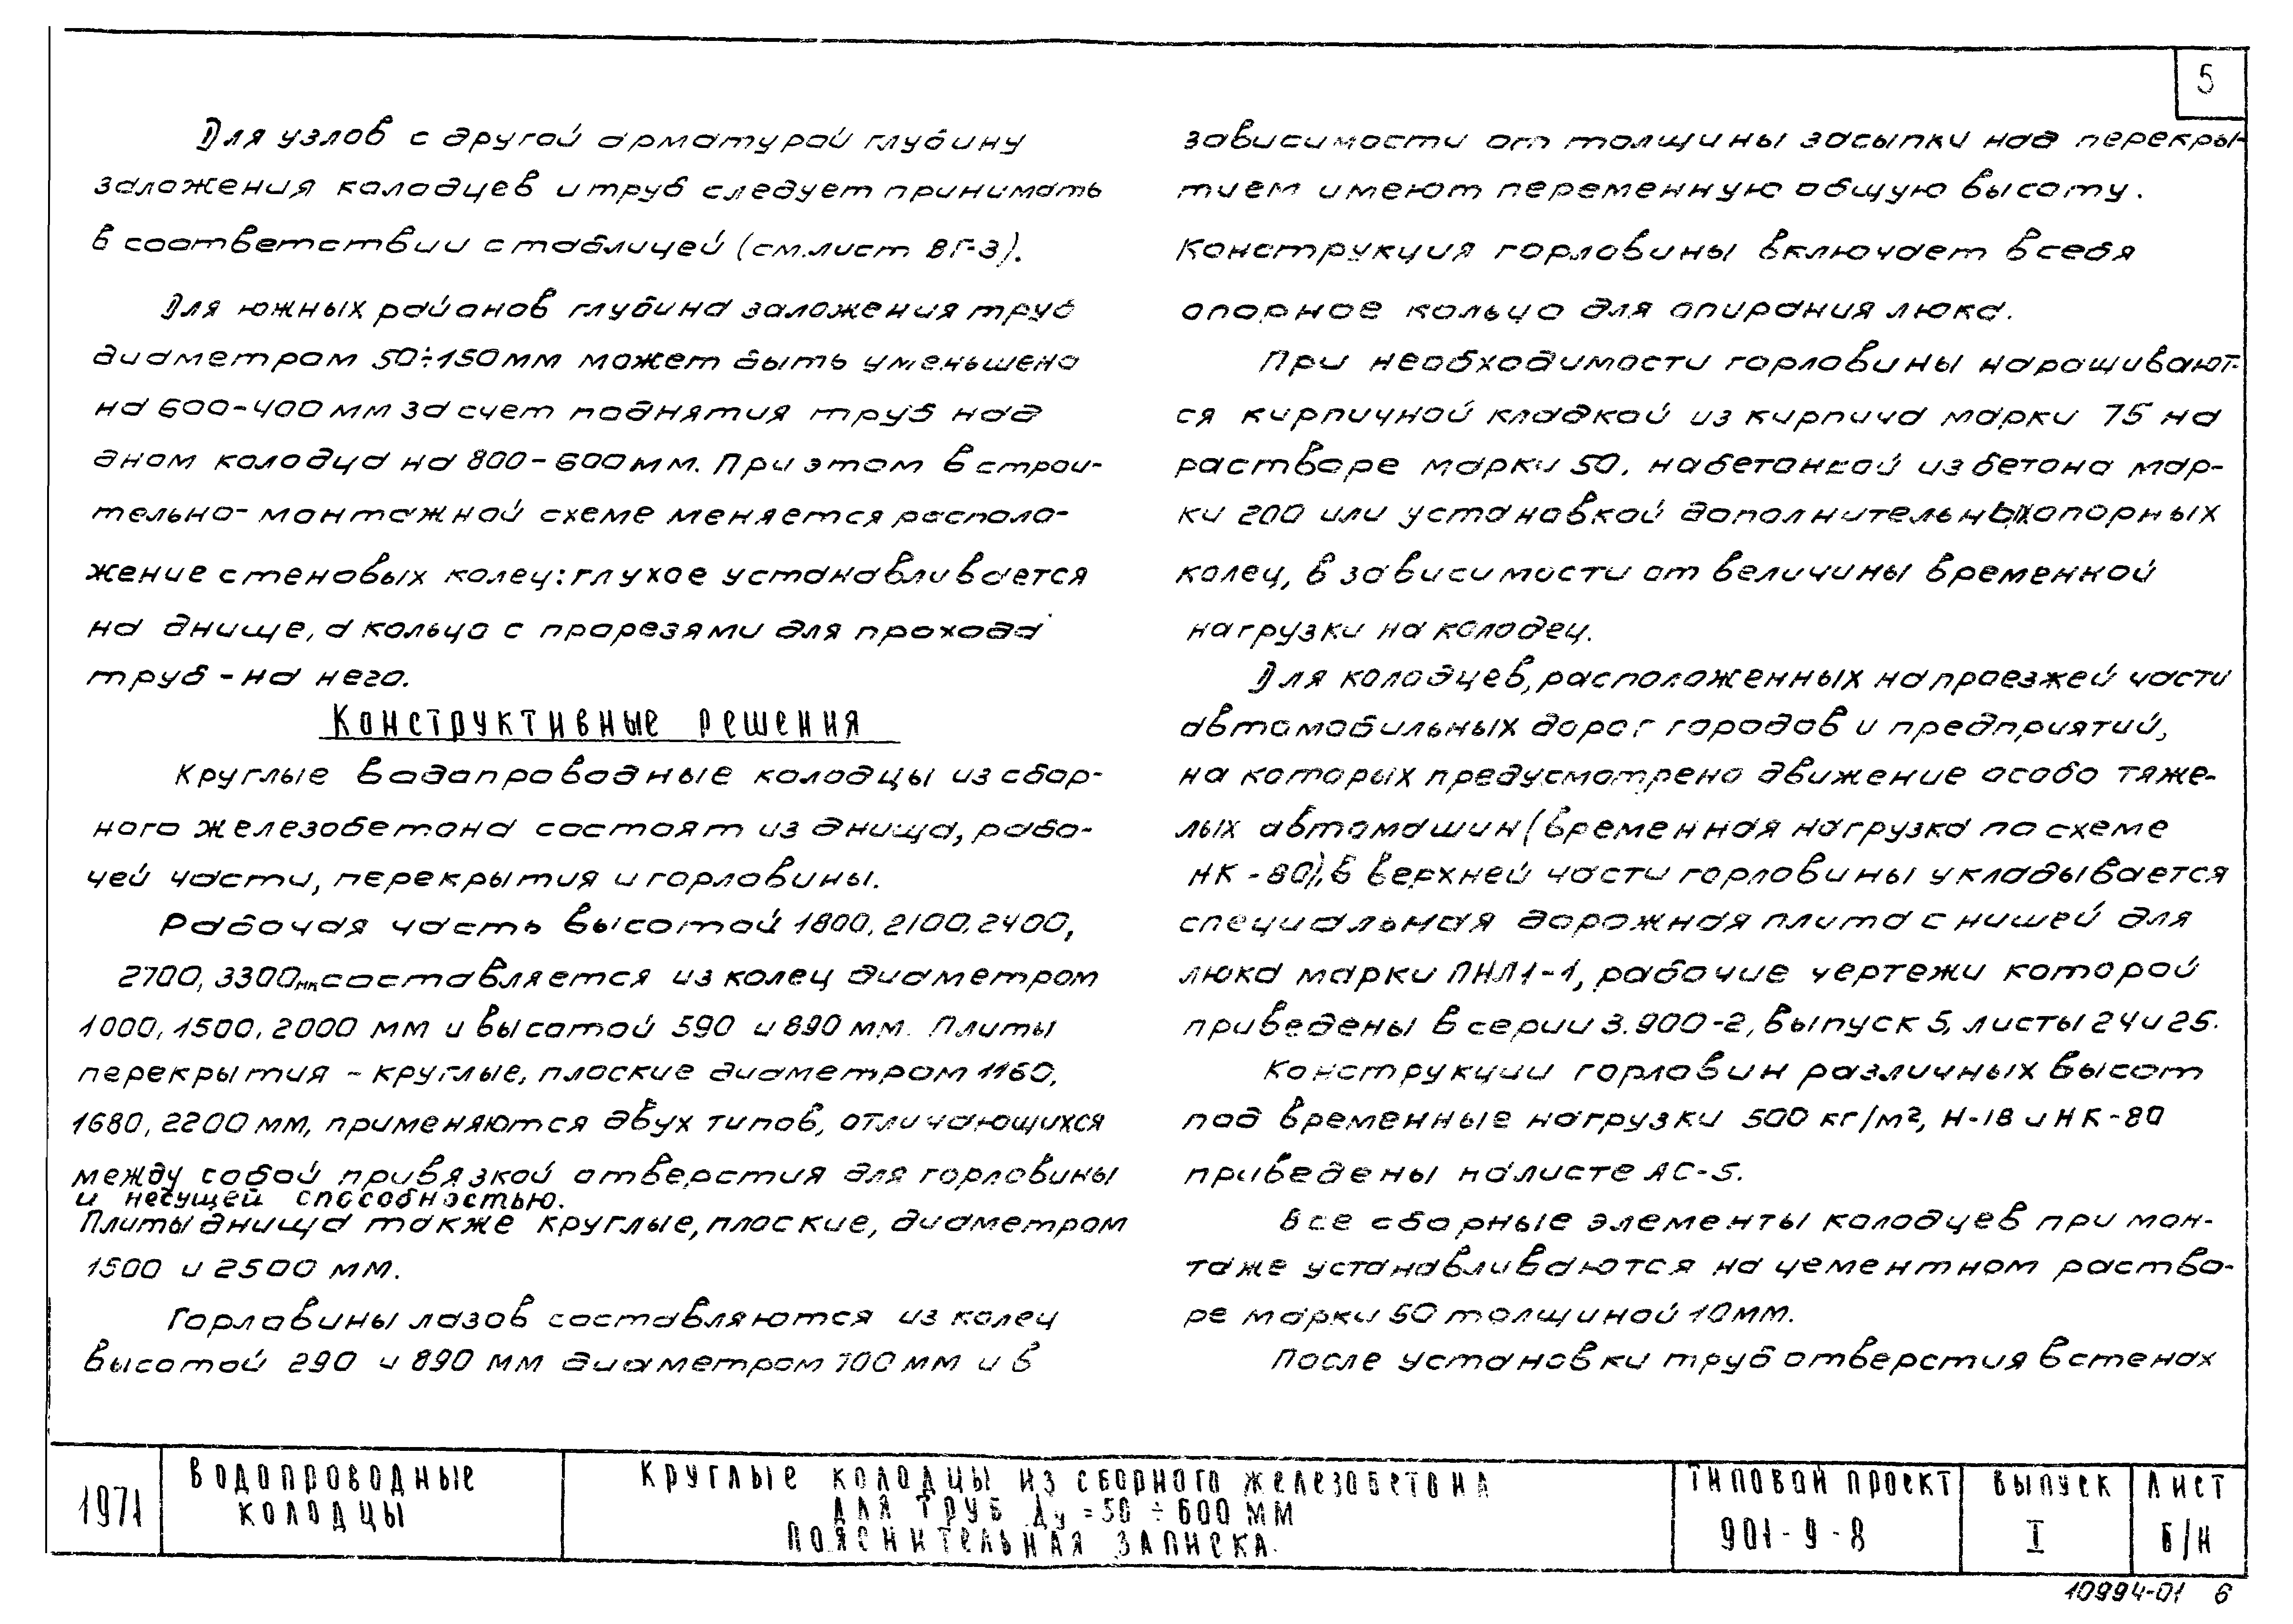 5
Для узлов с другой арматурой глубину
заложения колодцев и труб следует принимать
в соответствии с таблицей (см. лист ВГ-3).
Для южных районов глубина заложения труб
диаметром 50÷150 мм может быть уменьшена
на 600-400 мм за счет поднятия труб над
дном колодца на 800-600 мм. При этом в строи-
тельно-монтажной схеме меняется располо-
жение стеновых колец: глухое устанавливается
на днище, а кольцо с прорезями для прохода
труб - на него.
Конструктивные решения
Круглые водопроводные колодцы из сбор-
ного железобетона состоят из днища, рабо-
чей части, перекрытия и горловины.
Рабочая часть высотой 1800, 2100, 2400,
2700, 3300 мм составляется из колец диаметром
1000, 1500, 2000 мм и высотой 590 и 890 мм. Плиты
перекрытия - круглые, плоские диаметром 1160,
1680, 2200 мм, применяются двух типов, отличающихся
между собой привязкой отверстия для горловины
и несущей способностью.
Плиты днища также круглые, плоские, диаметром
1500 и 2500 мм.
Горловины лазов составляются из колец
высотой 290 и 890 мм диаметром 700 мм и в
зависимости от толщины засыпки над перекры-
тием имеют переменную общую высоту.
Конструкция горловины включает в себя
опорное кольцо для опирания люка.
При необходимости горловины наращивают-
ся кирпичной кладкой из кирпича марки 75 на
растворе марки 50, набетонкой из бетона мар-
ки 200 или установкой дополнительных опорных
колец, в зависимости от величины временной
нагрузки на колодец.
Для колодцев, расположенных на проезжей части
автомобильных дорог городов и предприятий,
на которых предусмотрено движение особо тяже-
лых автомашин (временная нагрузка по схеме
НК-80), в верхней части горловины укладывается
специальная дорожная плита с нишей для
люка марки ПНЛ1-1, рабочие чертежи которой
приведены в серии 3.900-2, выпуск 5, листы 24 и 25.
Конструкции горловин различных высот
под временные нагрузки 500 кг/м², Н-18 и НК-80
приведены на листе АС-5.
Все сборные элементы колодцев при мон-
таже устанавливаются на цементном раство-
ре марки 50 толщиной 10 мм.
После установки труб отверстия в стенах
1971
Водопроводные
колодцы
Круглые колодцы из сборного железобетона
для труб Ду = 50 ÷ 600 мм
Пояснительная записка.
Типовой проект
901-9-8
Выпуск
I
Лист
Б/Н
10994-01 6